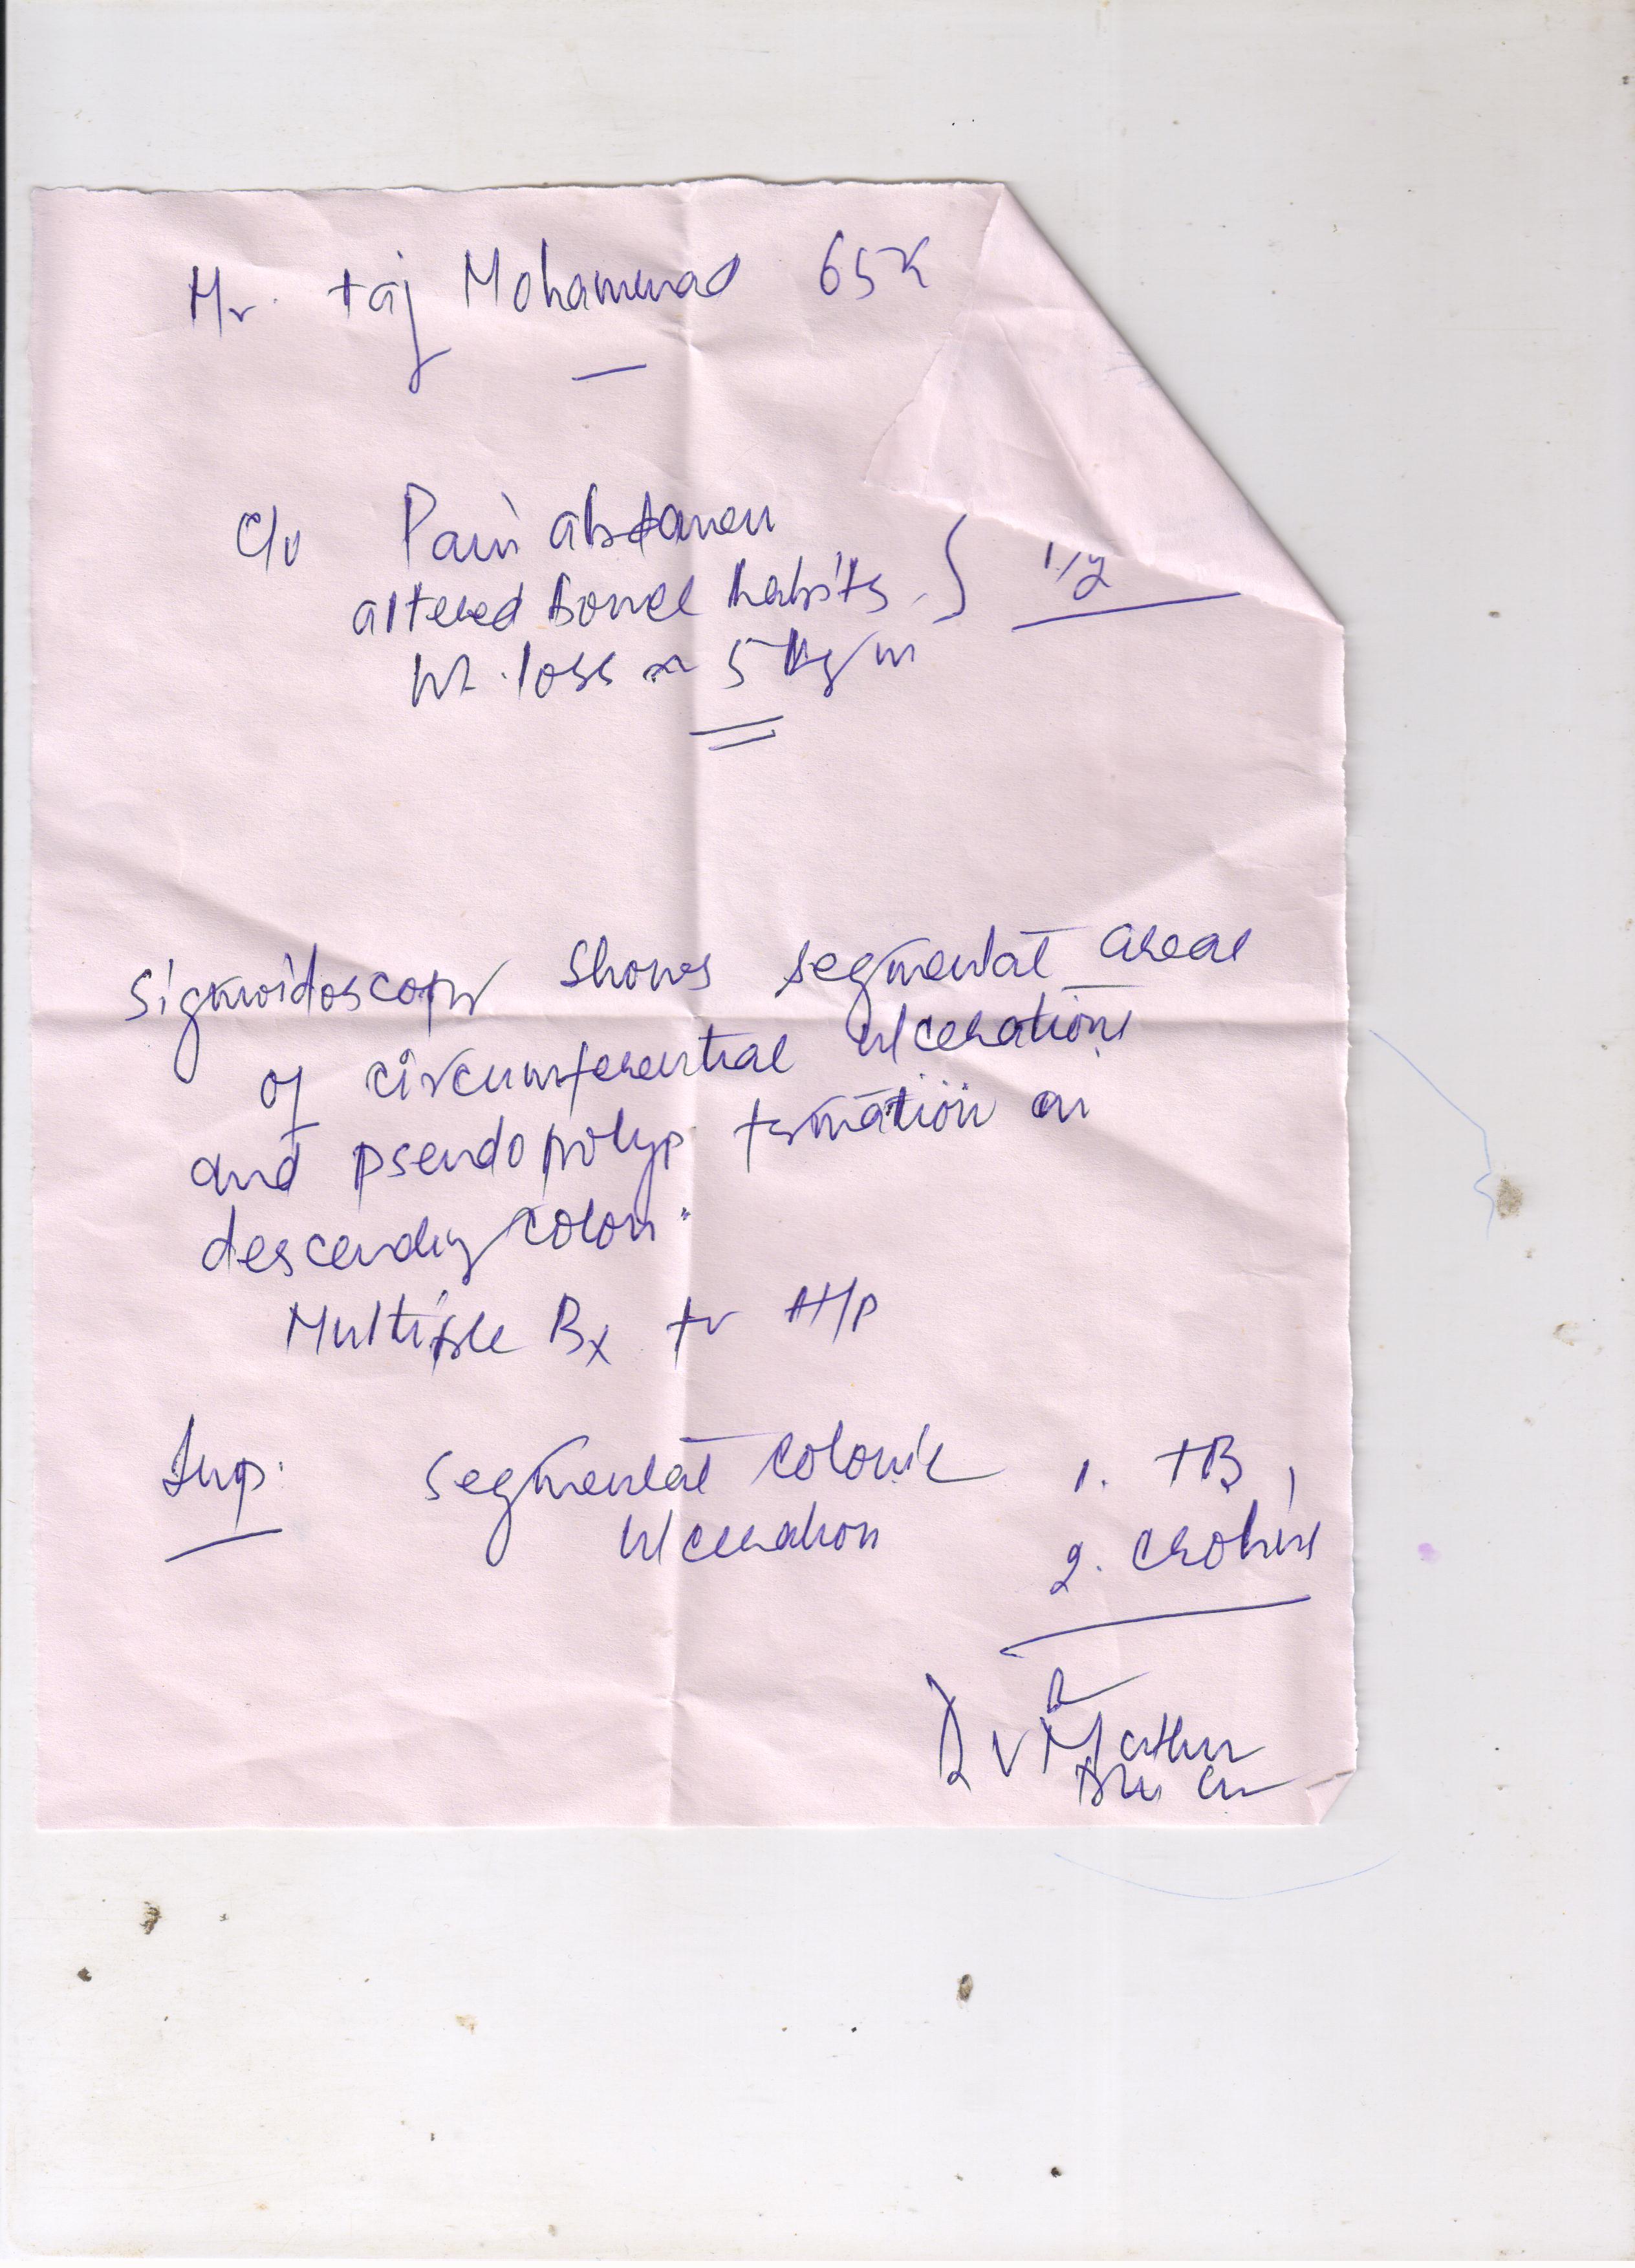 Mr. Taj Mohammad 65
c/o Pain abdomen
altered bowel habits. }
wt. loss ~ 5 kg
Sigmoidoscopy shows segmental areas
of circumferential ulcerations
and pseudopolyp formation in
descending colon.
Multiple Bx for H/P
Imp. segmental colonic 1. TB,
ulceration 2. Crohns
Dr Mathur